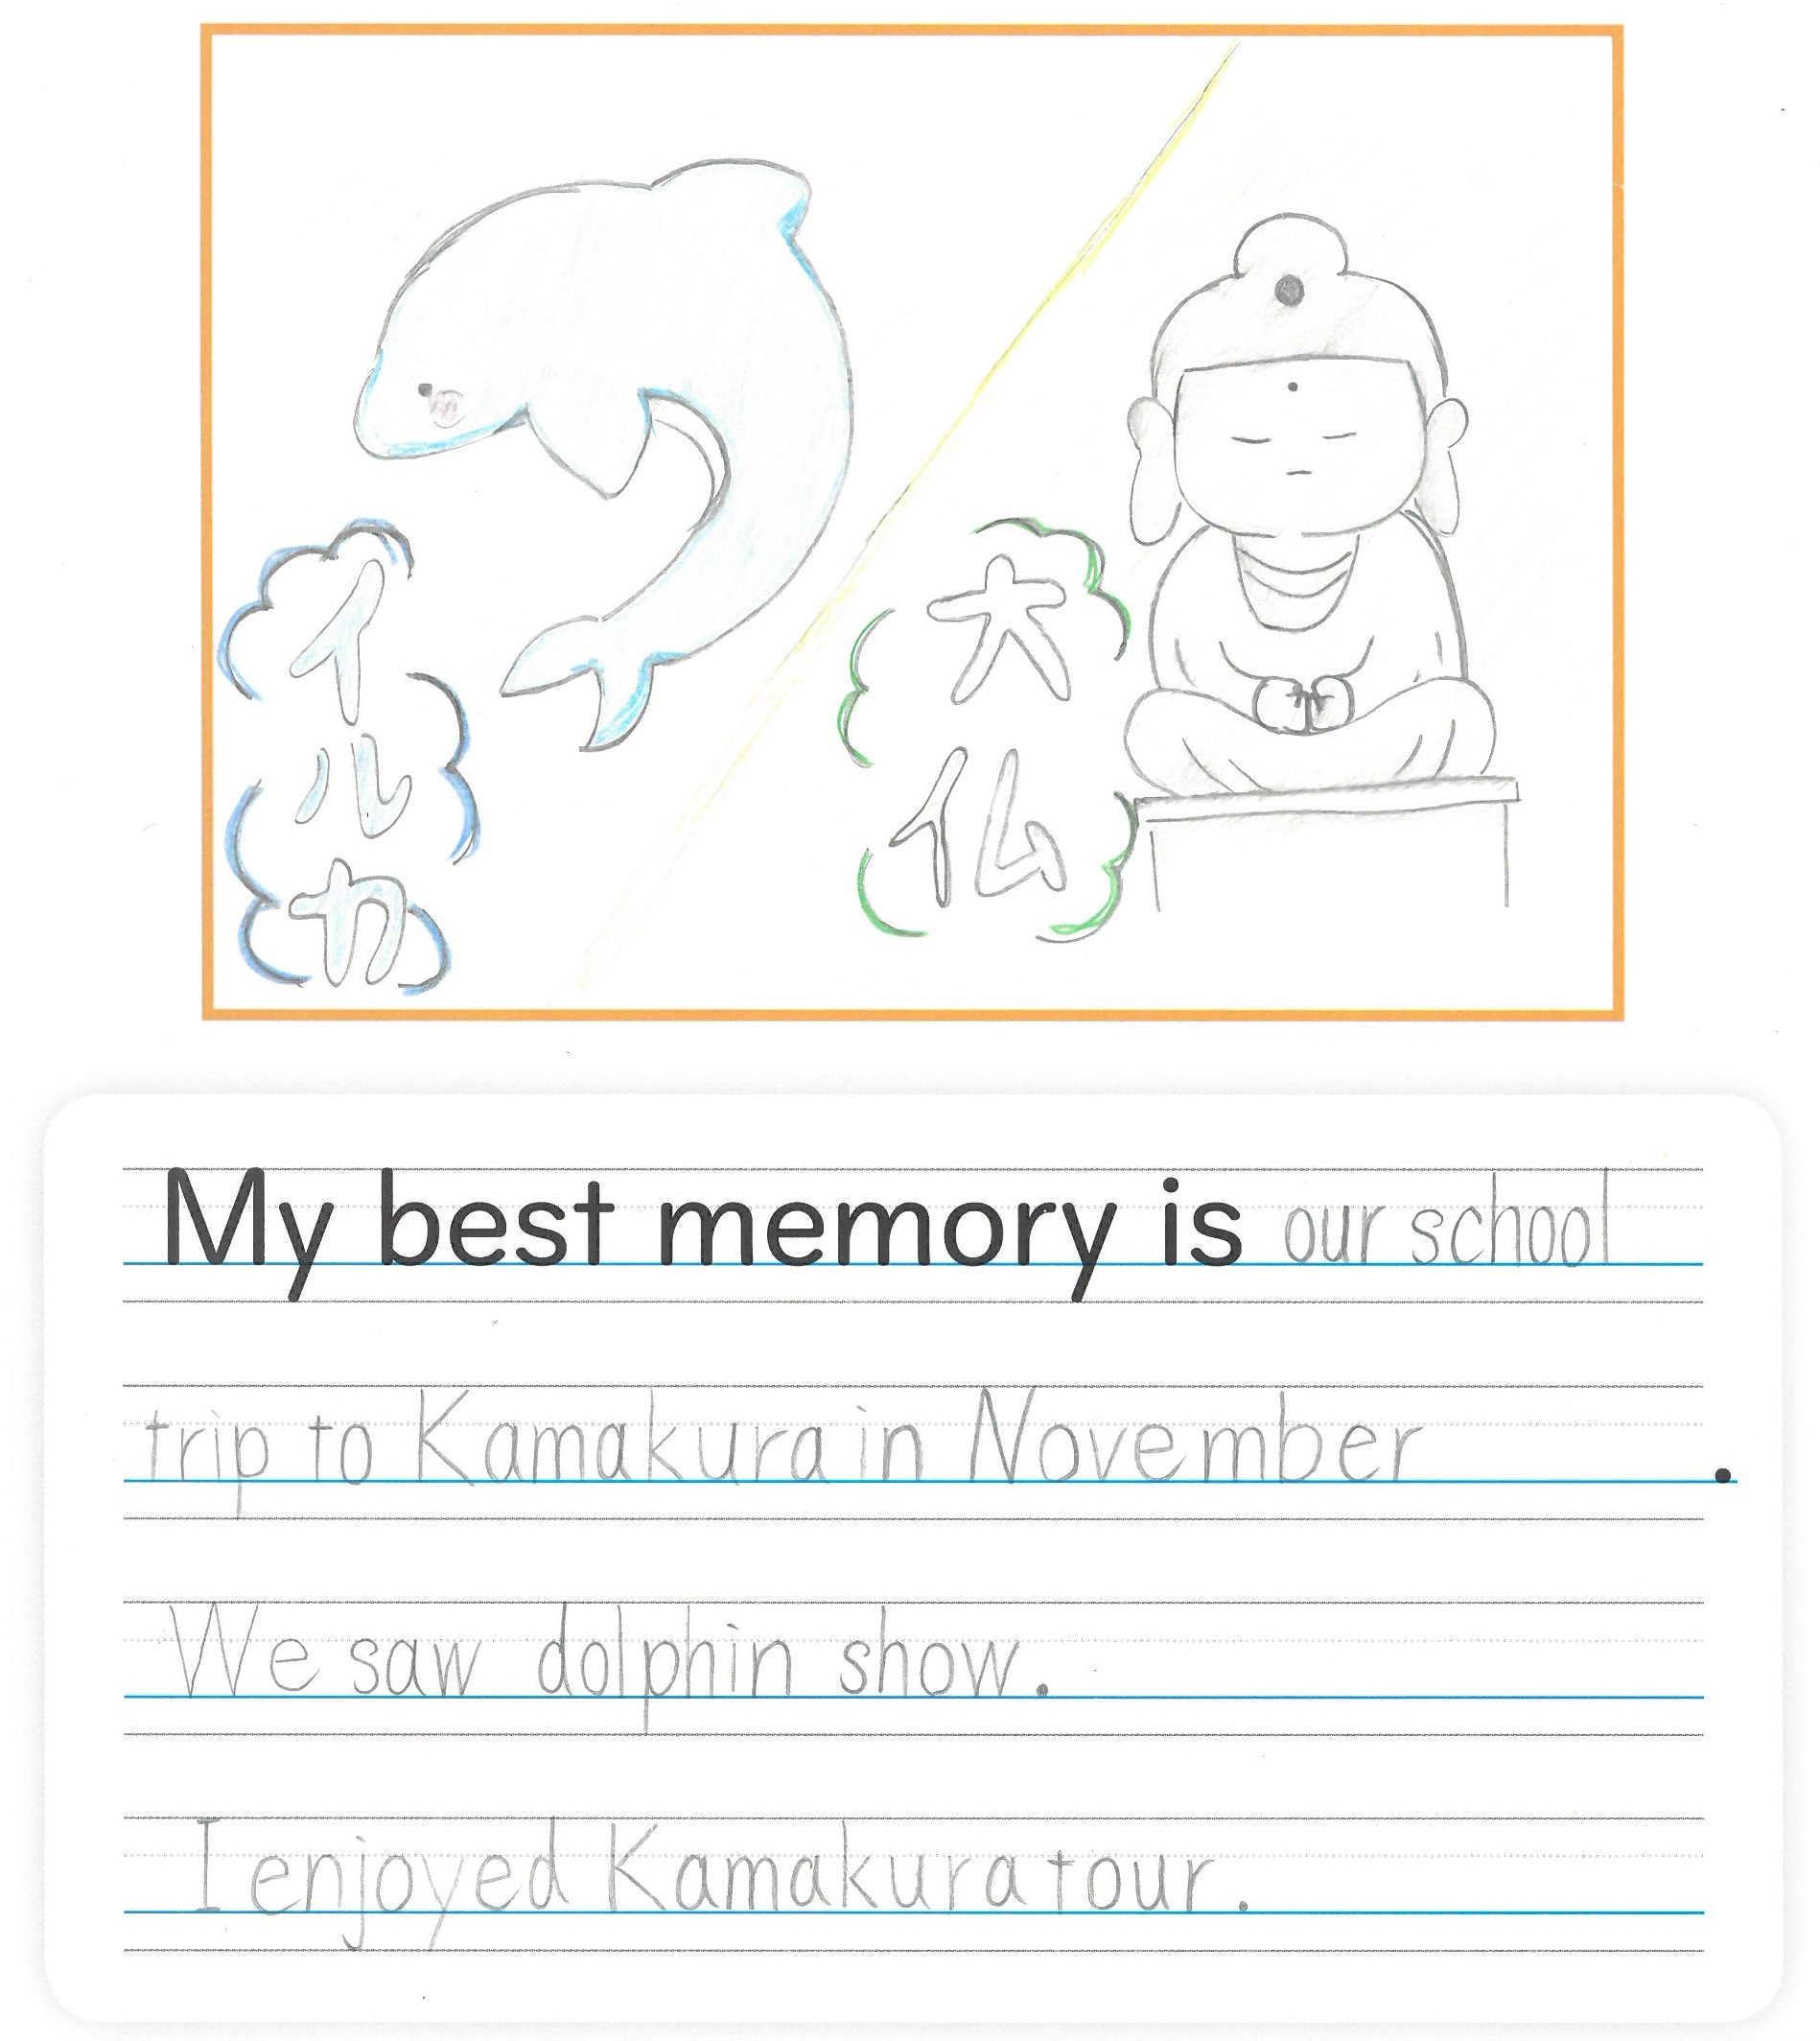 イルカ
大仏
My best memory is our school
trip to Kamakura in November .
We saw dolphin show.
I enjoyed Kamakura tour.